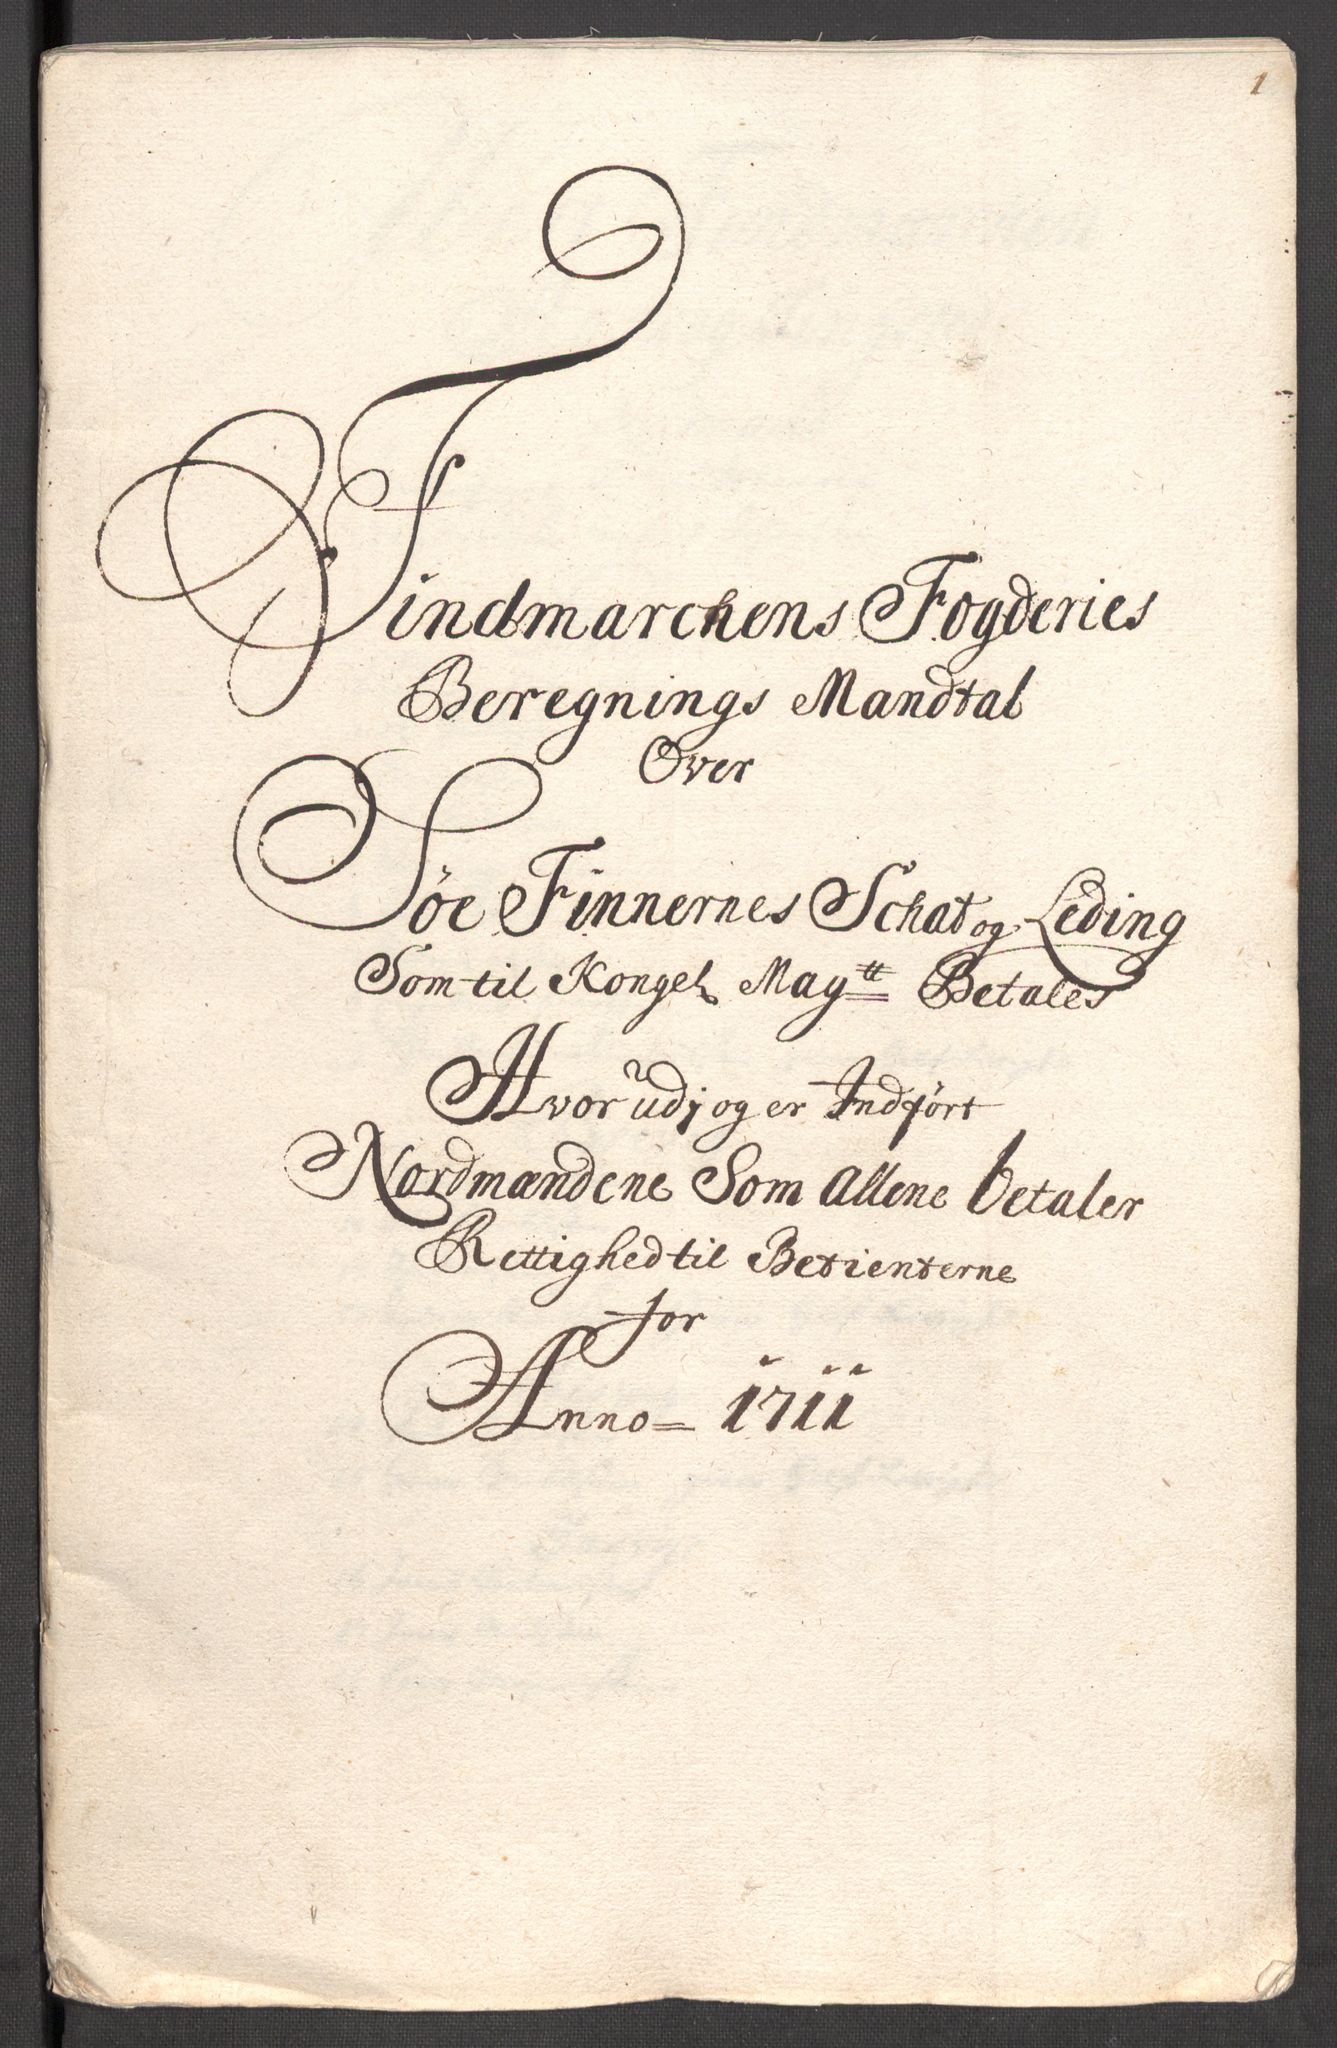 1
Findmarchens Fogderies
Beregnings Mandtal
Over
Søe Finnernes Schat og Leding
Som til Kongel Maytt Betales
Hvor udj og er Indført
Nordmændene Som Allene betaler
Rettighed til Betienterne
for
Anno = 1711